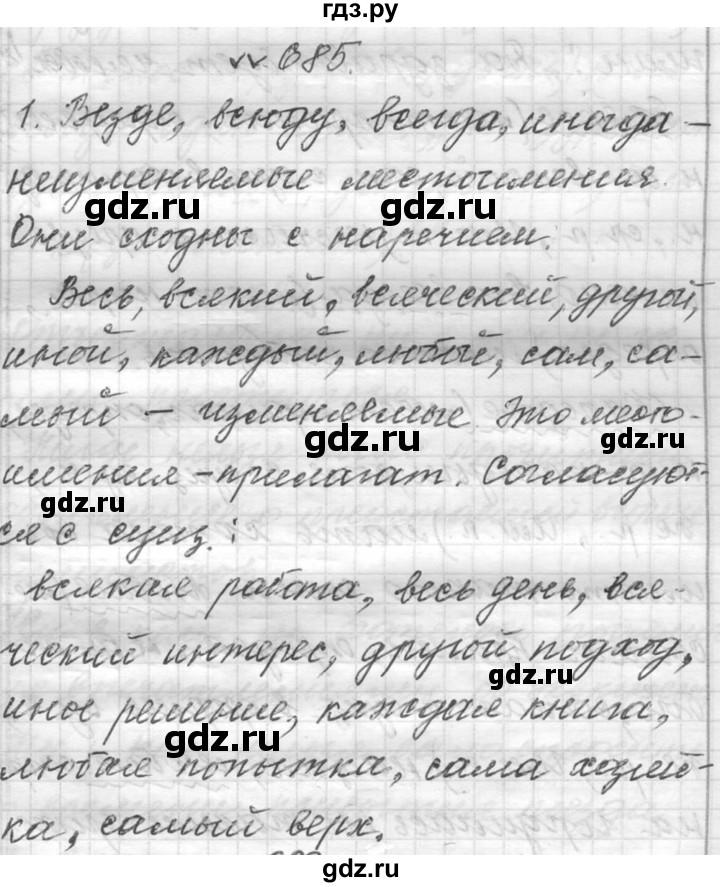 гдз.ру
№ 685.
1. Везде, всюду, всегда, иногда –
неизменяемые местоимения.
gdz.ru gdz.ru
Они сходны с наречием.
Весь, всякий, всяческий, другой,
иной, каждый, любой, сам, са-
мый – изменяемые. Это место-
gdz.ru gdz.ru
имения – прилагат. Согласуют-
gdz.ru
ся с сущ.:
всякая работа, весь день, вся-
ческий интерес, другой подход,
gdz.ru
иное решение, каждая книга,
gdz.ru
любая попытка, сама хозяй-
ка, самый верх.
gdz.ru